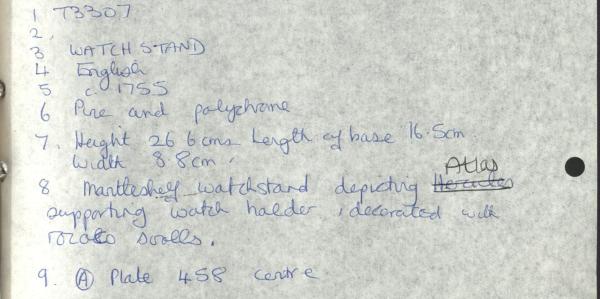 1 T3307
2.
3 WATCH STAND
4 English
5 c. 1755
6 Pine and polychrome
7. Height 26 6cms Length of base 16.5cm.
Width 8 8cm.
Atlas
8 Mantleshelf watchstand depicting Heracles
supporting watch holder, decorated with
rococo scrolls.
9. A Plate 458 centre